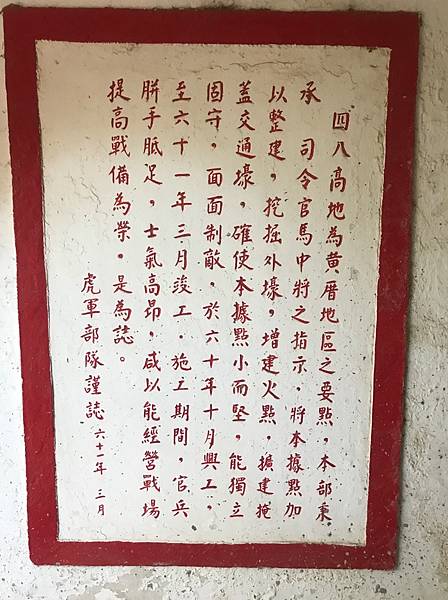 四八高地為黄厝地區之要點，本部秉
承　司令官馬中將之指示，將本據點加
以整建，挖掘外壕，增建火點，擴建掩
蓋交通壕，確使本據點小而堅，能獨立
固守，面面制敵，於六十年十月興工，
至六十一年三月竣工，施工期間，官兵
胼手胝足，士氣高昂，咸以能經營戰場
提高戰備為榮，是為誌。
虎軍部隊謹誌 六十年 三月